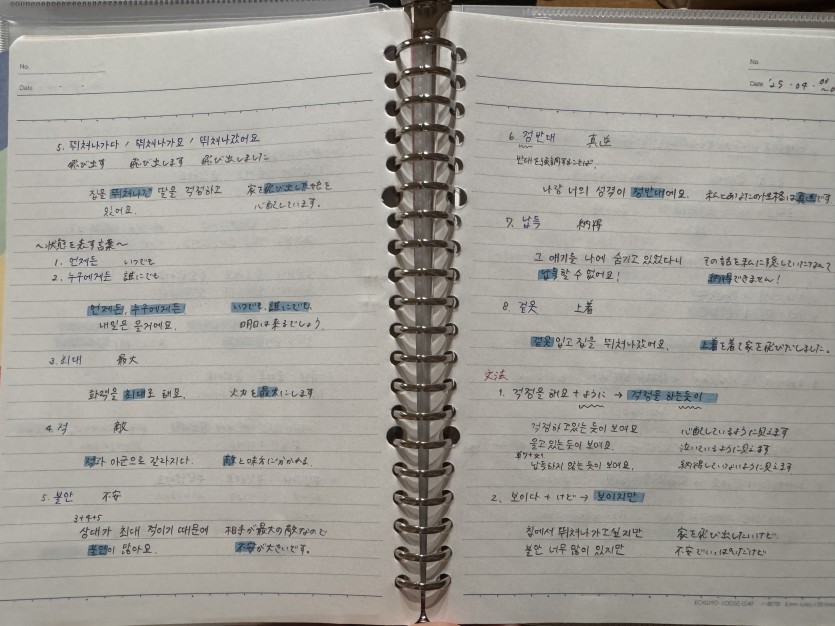 No.
Date
5. 뛰쳐나가다 / 뛰쳐나가요 / 뛰쳐나갔어요
飛び出す 飛び出します 飛び出しました
집을 뛰쳐나간 딸을 걱정하고 家を飛び出した娘を
있어요. 心配しています。
～状態を表す言葉～
1. 언제든 いつでも
2. 누구에게든 誰にでも
언제든, 누구에게든 いつでも、誰にでも、
내일은 올거에요. 明日は来るでしょう。
3. 최대 最大
화력을 최대로 해요. 火力を最大にします
4. 적 敵
적과 아군으로 갈라지다. 敵と味方に分かれる。
5. 불안 不安
3+4+5
상대가 최대 적이기 때문에 相手が最大の敵なので
불안이 많아요. 不安が大きいです。
No.
Date '25・04・
6. 정반대 真逆
반대を強調することば。
나랑 너의 성격이 정반대에요. 私とあなたの性格は真逆です
7. 납득 納得
그 얘기를 나에 숨기고 있었다니 その話を私に隠していたなんて
납득할 수 없어요! 納得できません!
8. 겉옷 上着
겉옷 입고 집을 뛰쳐나갔어요. 上着を着て家を飛びだしました。
文法
1. 걱정을 해요 + ように → 걱정을 하는듯이
걱정하고있는 듯이 보여요 心配しているように見えます
울고있는 듯이 보여요. 泣いているように見えます
납득하지 않는 듯이 보여요. 納得していないように見えます
2. 보이다 + けど → 보이지만
집에서 뛰쳐나가고싶지만 家を飛び出したいけど
불안 너무 많이 있지만 不安でいっぱいだけど